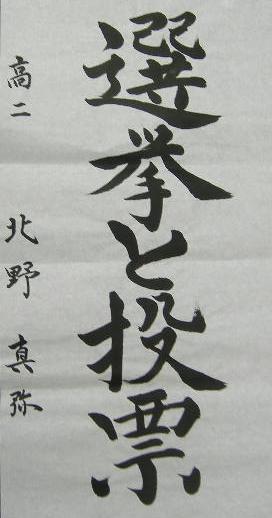 選挙と投票
高二 北野 真弥